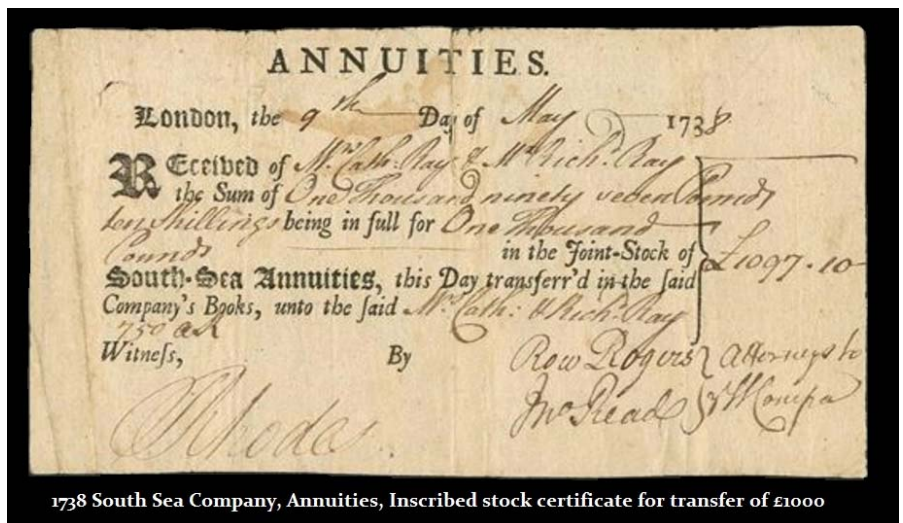 ANNUITIES.
London, the 9th Day of May 1738
REceived of Mrs Cath: Ray & Mr Richd. Ray
the Sum of One Thousand ninety seven Pounds
ten Shillings being in full for One Thousand
Pounds in the Joint-Stock of
£1097.10
South-Sea Annuities, this Day transferr'd in the said
Company's Books, unto the said Mrs Cath: & Richd. Ray
Witneſs, By Row Rogers Attorneys to
Jno Read
Rhodes
1738 South Sea Company, Annuities, Inscribed stock certificate for transfer of £1000